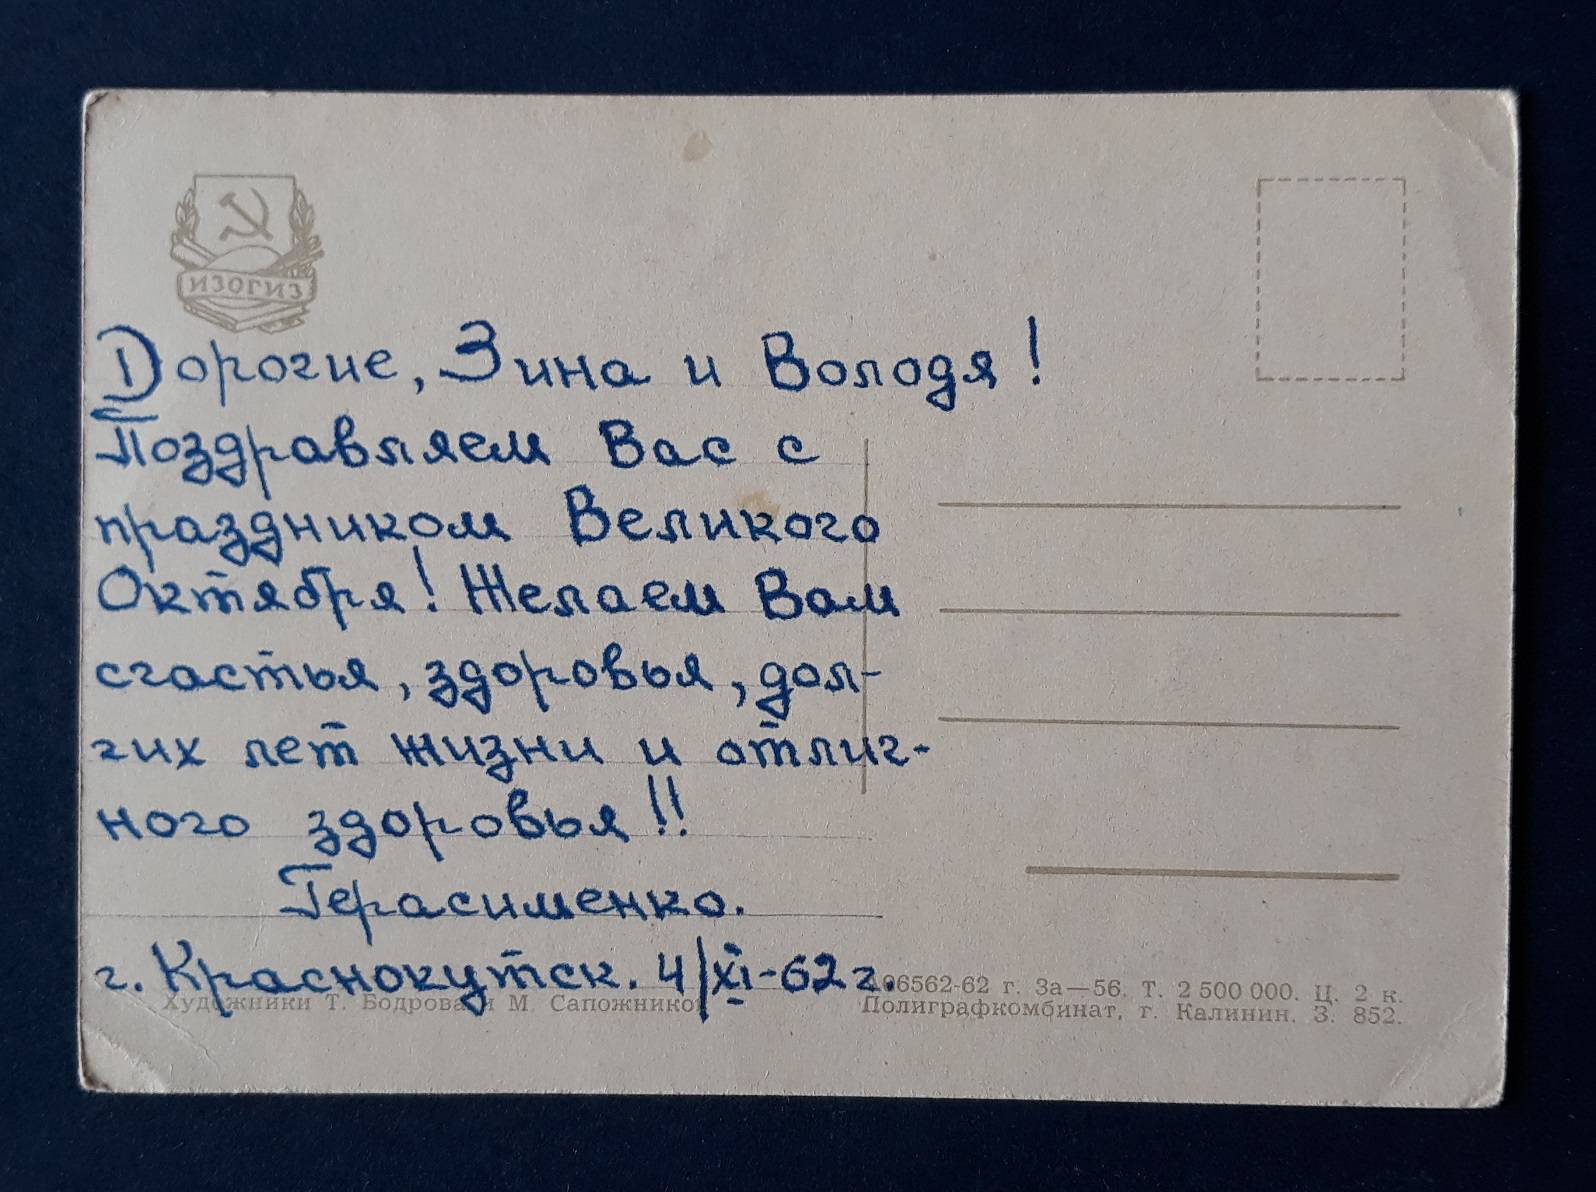 ИЗОГИЗ
Дорогие, Зина и Володя!
Поздравляем Вас с
праздником Великого
Октября! Желаем Вам
счастья, здоровья, дол-
гих лет жизни и отлич-
ного здоровья!!
Герасименко.
г. Краснокутск. 4/XI-62 г.
Художники Т. Бодрова и М. Сапожников
А06562-62 г. За—56. Т. 2 500 000. Ц. 2 к.
Полиграфкомбинат, г. Калинин. З. 852.